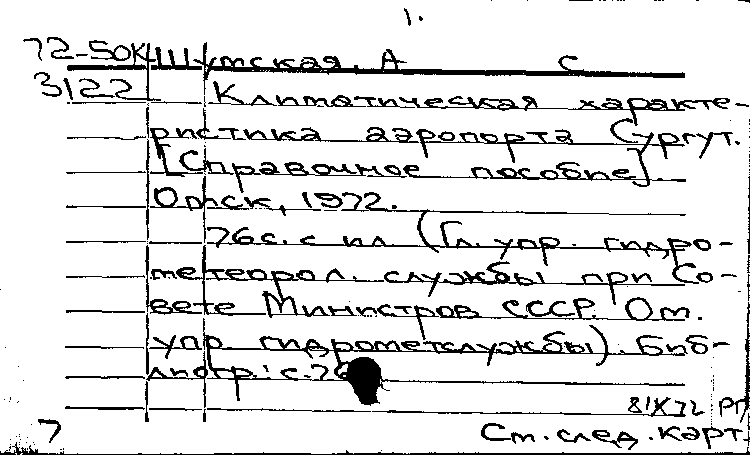 1.
72-50К Шутская, А С
3122 Климатическая характе-
ристика аэропорта Сургут.
[Справочное пособие].
Омск, 1972.
76 с. с ил (Гл. упр. гидро-
метеорол. службы при Со-
вете Министров СССР. Ом.
упр гидрометслужбы). Биб-
лиогр.: с. 76
81X72 РП
7 См. след. карт.